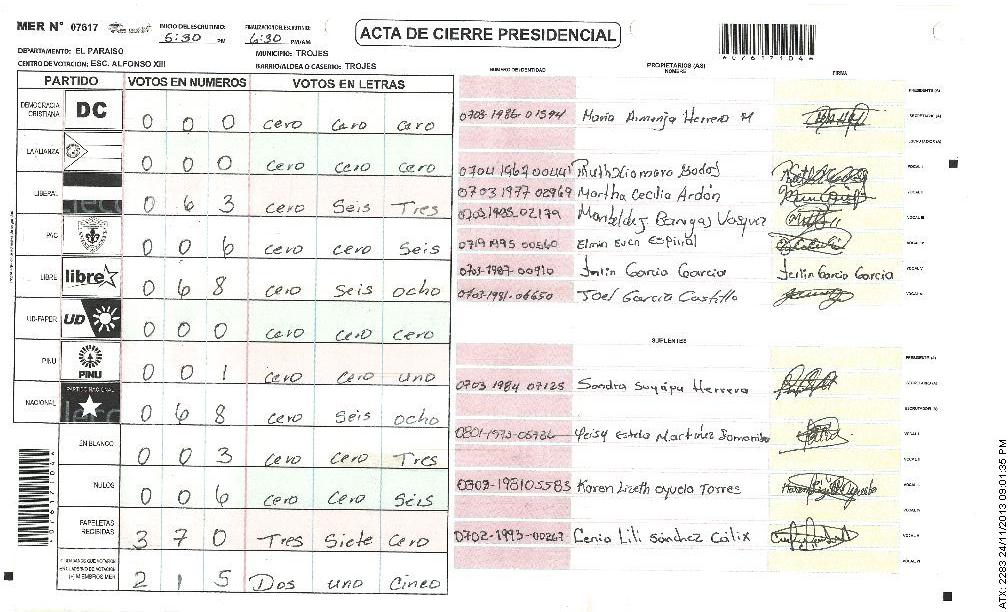 MER N° 07617
INICIO DEL ESCRUTINIO:
5:30 PM
FINALIZACION DEL ESCRUTINIO:
6:30 PM/AM
DEPARTAMENTO: EL PARAISO
MUNICIPIO: TROJES
CENTRO DE VOTACION: ESC. ALFONSO XIII
BARRIO/ALDEA O CASERIO: TROJES
ACTA DE CIERRE PRESIDENCIAL
PARTIDO VOTOS EN NUMEROS VOTOS EN LETRAS
DEMOCRACIA CRISTIANA DC 0 0 0 cero caro caro
LA ALIANZA 0 0 0 cero cero cero
LIBERAL 0 6 3 cero Seis Tres
PAC 0 0 6 cero cero Seis
LIBRE libre 0 6 8 cero seis ocho
UD-FAPER UD 0 0 0 cero cero cero
PINU PINU 0 0 1 cero cero uno
NACIONAL PARTIDO NACIONAL 0 6 8 cero Seis ocho
EN BLANCO 0 0 3 cero cero Tres
NULOS 0 0 6 cero cero Seis
PAPELETAS RECIBIDAS 3 7 0 Tres Siete cero
MIEMBROS MER 2 1 5 Dos uno Cinco
NUMERO DE IDENTIDAD PROPIETARIOS (AS) NOMBRE FIRMA
PRESIDENTE (A)
0703-1986-01594 Maria Armenja Herrera M SECRETARIO (A)
ESCRUTADOR (A)
0704 1967 00441 Ruth Xiomara Godoy VOCAL I
0703 1977 02969 Martha Cecilia Ardón VOCAL II
0703 1988-02179 Banegas Vasquez VOCAL III
0719 1995 00560 Elmin Espinal VOCAL IV
0703-1987-00910 Jerlin Garcia Garcia Jerlin Garcia Garcia VOCAL V
0703-1981-06650 Joel Garcia Castillo VOCAL VI
SUPLENTES
PRESIDENTE (A)
0703 1984 07125 Sandra Suyapa Herrera SECRETARIO (A)
ESCRUTADOR (A)
0801-1973-05736 Yeisy Estela Martinez VOCAL I
VOCAL II
0703-198105583 Karen Lizeth ayuela Torres VOCAL III
VOCAL IV
0702-1993-00267 Cenia Lili Sánchez Cálix VOCAL V
VOCAL VI
ATX: 2283 24/11/2013 09:01:35 PM